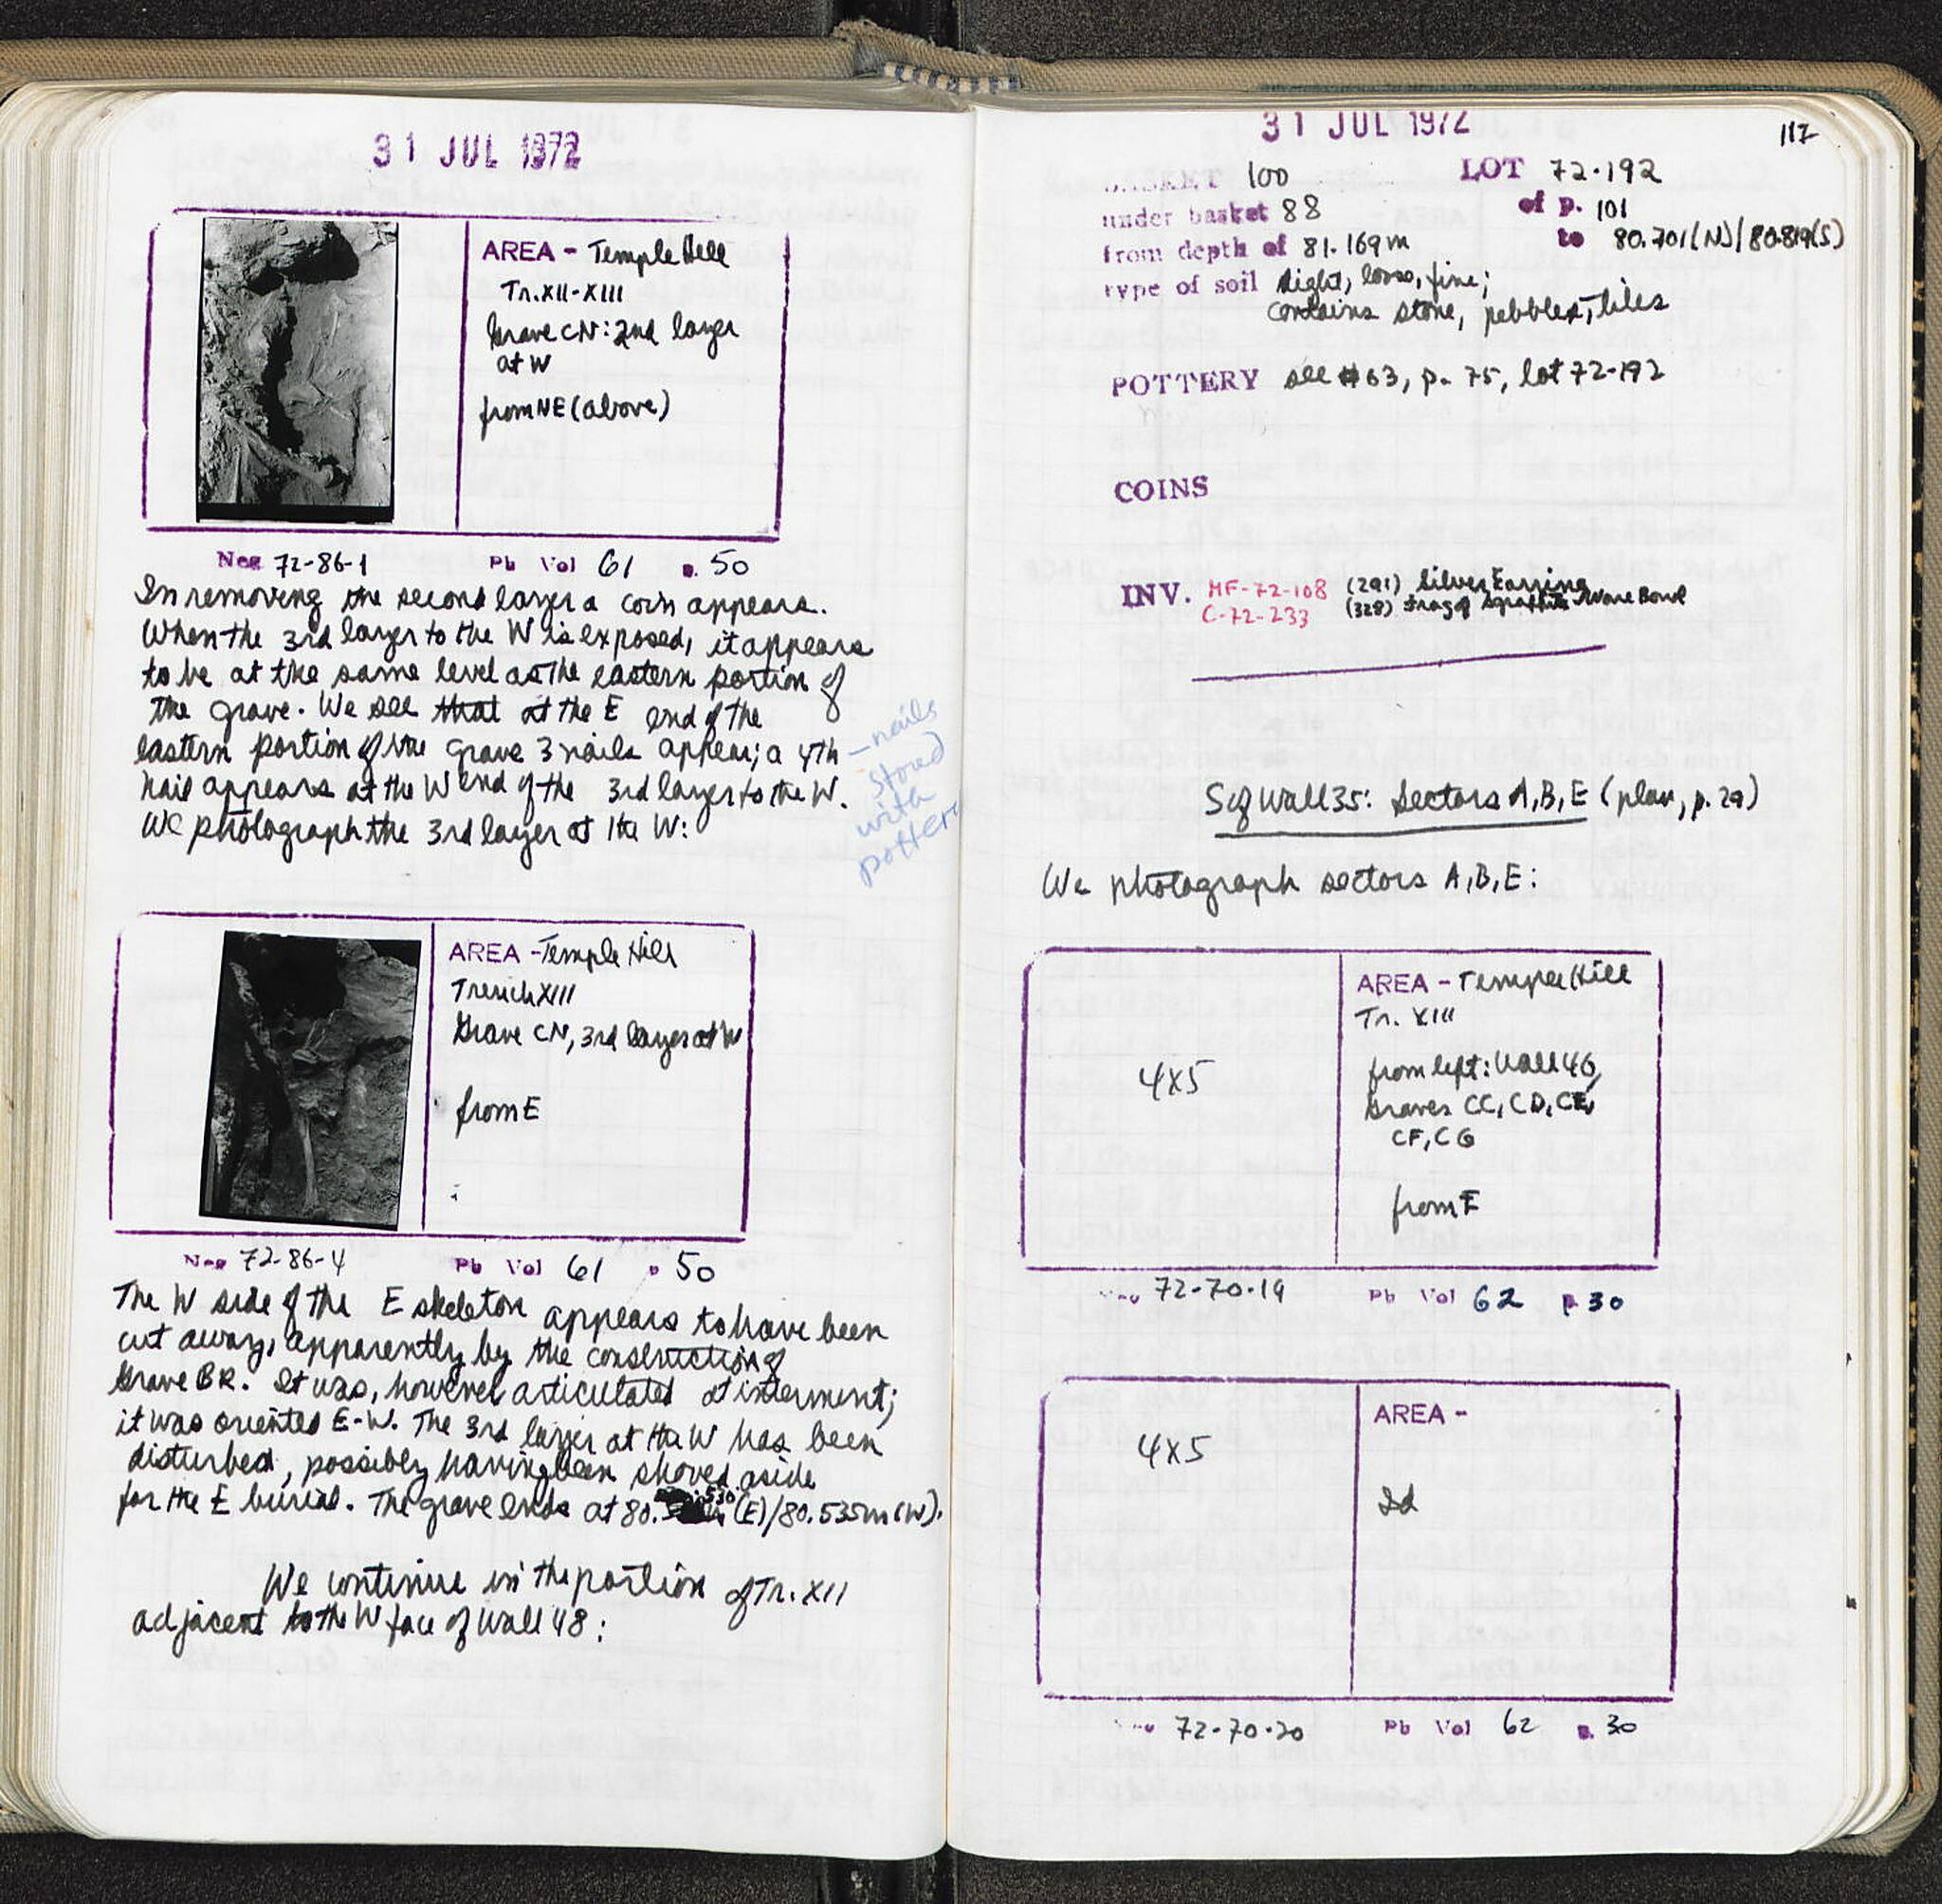 31 JUL 1972
AREA - Temple Hill
Tr. XII-XIII
Grave CN: 2nd layer
at W
from NE (above)
Neg 72-86-1 Pb Vol 61 p. 50
In removing the second layer a coin appears.
When the 3rd layer to the W is exposed, it appears
to be at the same level as the eastern portion of
the grave. We see that at the E end of the
eastern portion of the grave 3 nails appear; a 4th
nail appears at the W end of the 3rd layer to the W.
We photograph the 3rd layer at the W:
- nails
stored
with
pottery
AREA - Temple Hill
Trench XIII
Grave CN, 3rd layer at W
from E
Neg 72-86-4 Pb Vol 61 p 50
The W side of the E skeleton appears to have been
cut away, apparently by the construction of
Grave BR. It was, however articulated at interment;
it was oriented E-W. The 3rd layer at the W has been
disturbed, possibly having been shoved aside
for the E burial. The grave ends at 80.530 (E)/80.535m (W).
We continue in the portion of Tr. XII
adjacent to the W face of Wall 48:
31 JUL 1972
117
BASKET 100 LOT 72-192
under basket 88 of p. 101
from depth of 81.169m to 80.701(N)/80.819(S)
type of soil light, loose, fine;
contains stone, pebbles, tiles
POTTERY see #63, p. 75, lot 72-192
COINS
INV. MF-72-108 (291) Silver Earring
C-72-233 (328) frag of Sgraffito Ware Bowl
S of Wall 35: Sectors A, B, E (plan, p. 29)
We photograph sectors A, B, E:
4x5
AREA - Temple Hill
Tr. XIII
from left: Wall 46,
Graves CC, CD, CE,
CF, CG
from E
Neg 72-70-19 Pb Vol 62 p 30
4x5
AREA -
Id
Neg 72-70-20 Pb Vol 62 p. 30